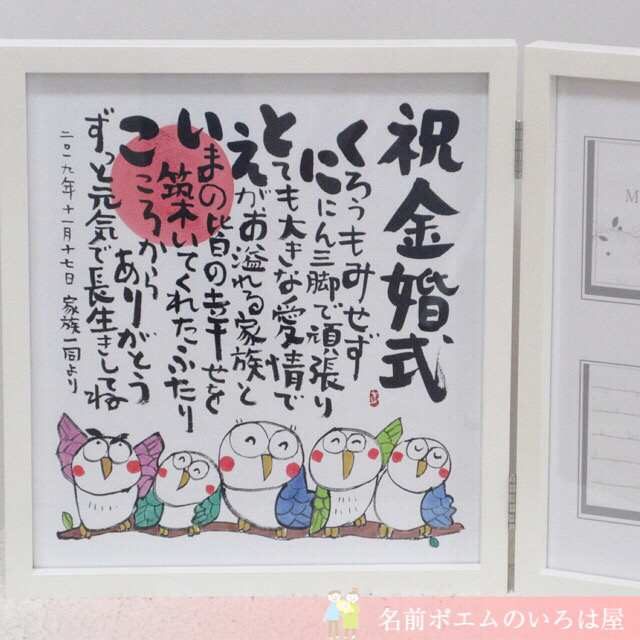 祝金婚式
くろうもみせず
ににん三脚で頑張り
とても大きな愛情で
えがお溢れる家族と
いまの皆の幸せを
築いてくれたふたり
こころから ありがとう
ずっと元気で長生きしてね
二〇一九年十一月十七日 家族一同より
M
名前ポエムのいろは屋